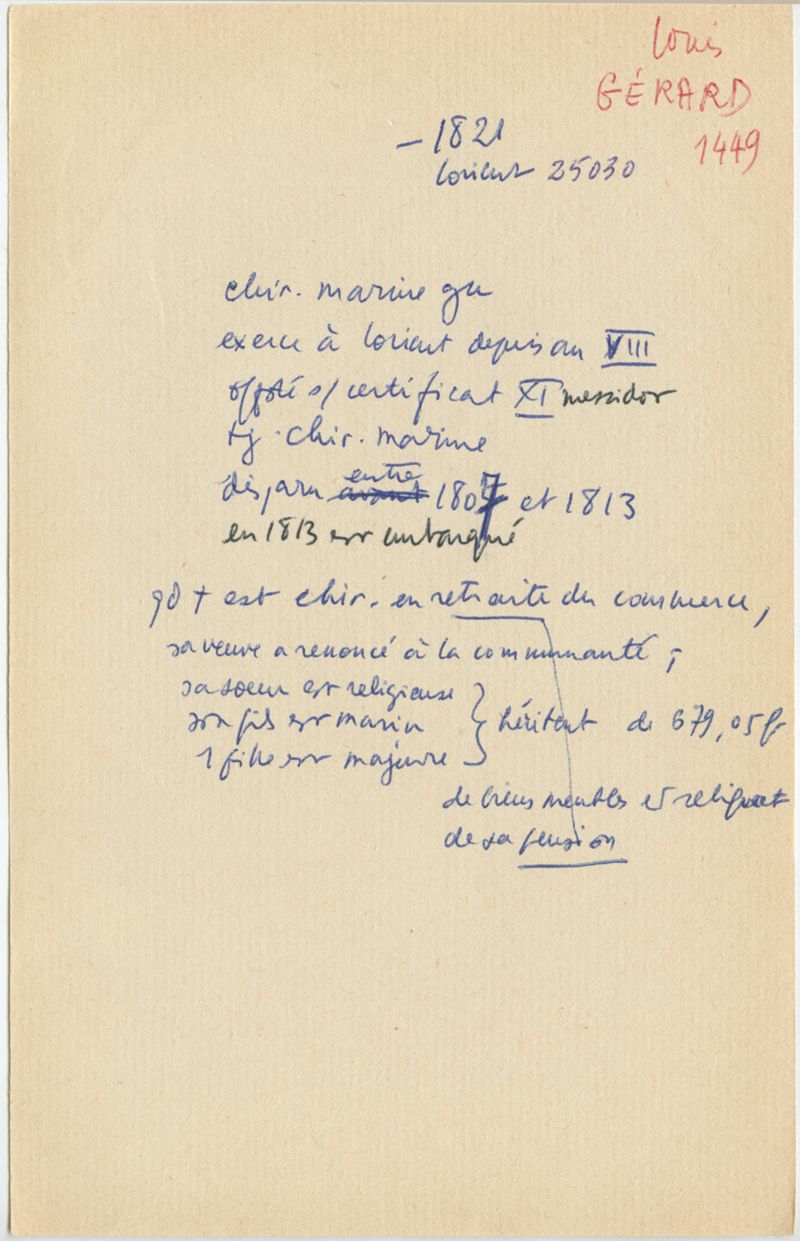 Louis
GÉRARD
1449
– 1821
Lorient 25030
chir. marine gu
exerce à Lorient depuis an VIII
s/ certificat XI messidor
tj. chir. marine
disparu avant entre 1807 et 1813
en 1813 est embarqué
qd + est chir. en retraite du commerce,
sa veuve a renoncé à la communauté ;
sa soeur est religieuse
son fils est marin } héritent de 679,05 fr
1 fille est majeure
de biens meubles et reliquat
de sa pension